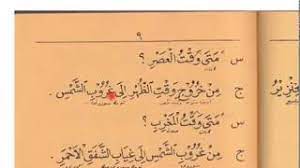 ٩
س مَتَى وَقْتُ الْعَصْرِ ؟
ج مِنْ خُرُوْجِ وَقْتِ الظُّهْرِ اِلَى غُرُوْبِ الشَّمْسِ .
س مَتَى وَقْتُ الْمَغْرِبِ ؟
ج مِنْ غُرُوْبِ الشَّمْسِ اِلَى غِيَابِ الشَّفَقِ الْاَحْمَرِ .